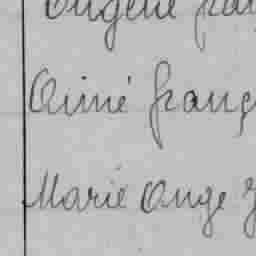 Eugène
Aimé franç
Marie Ange